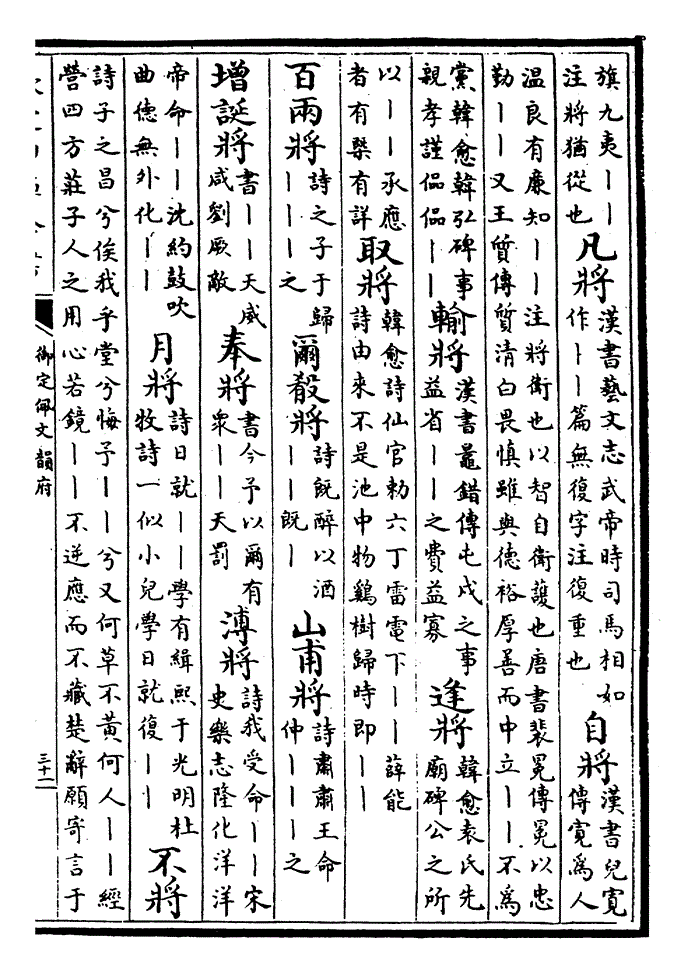 旗九夷丨丨
注將猶從也
凡將
漢書藝文志武帝時司馬相如
作丨丨篇無復字注復重也
自將
漢書兒寛
傳寛爲人
温良有廉知丨丨注將衛也以智自衛護也唐書裴冕傳冕以忠
勤丨丨又王質傳質清白畏慎雖與德裕厚善而中立丨丨不爲
黨韓愈韓弘碑事
親孝謹侃侃丨丨
輸將
漢書鼂錯傳屯戍之事
益省丨丨之費益寡
逢將
韓愈袁氏先
廟碑公之所
以丨丨承應
者有槩有詳
取將
韓愈詩仙官勅六丁雷電下丨丨薛能
詩由來不是池中物鷄樹歸時即丨丨
百兩將
詩之子于歸
丨丨丨之
爾殽將
詩既醉以酒
丨丨既丨
山甫將
詩肅肅王命
仲丨丨丨之
增誕將
書丨丨天威
咸劉厥敵
奉將
書今予以爾有
衆丨丨天罰
溥將
詩我受命丨丨宋
史樂志隆化洋洋
帝命丨丨沈約鼓吹
曲德無外化丨丨
月將
詩日就丨丨學有緝熙于光明杜
牧詩一似小兒學日就復丨丨
不將
詩子之昌兮俟我乎堂兮悔予丨丨兮又何草不黄何人丨丨經
營四方莊子人之用心若鏡丨丨不逆應而不藏楚辭願寄言于
御定佩文韻府
三十一